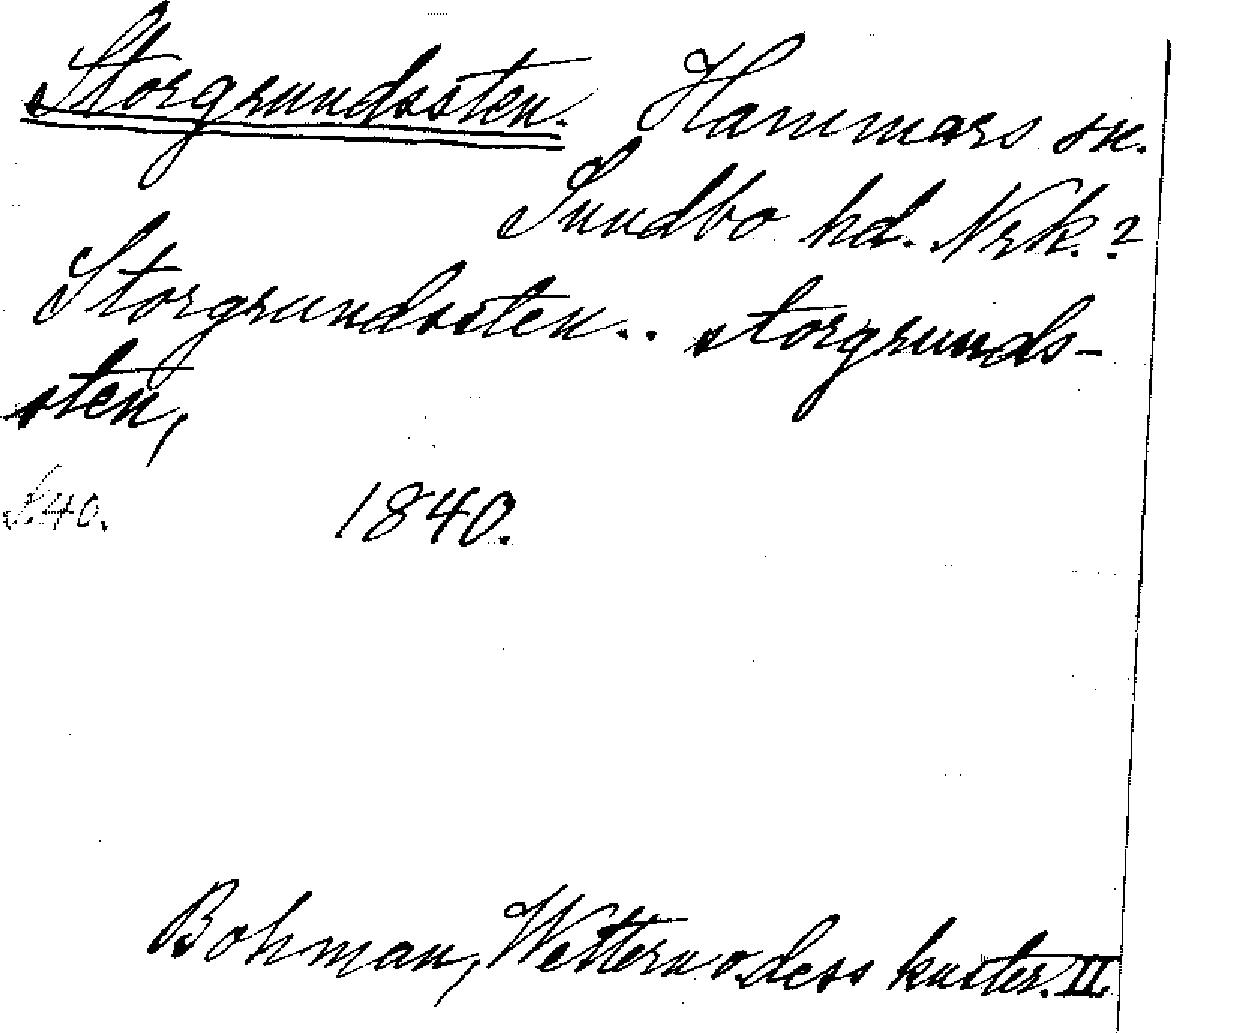 Storgrundssten. Hammars sk.
Sundbo hd. Nrk.?
Storgrundssten.. storgrunds-
sten,
S.40. 1840.
Bohman, Wettern o. dess kuster. II.